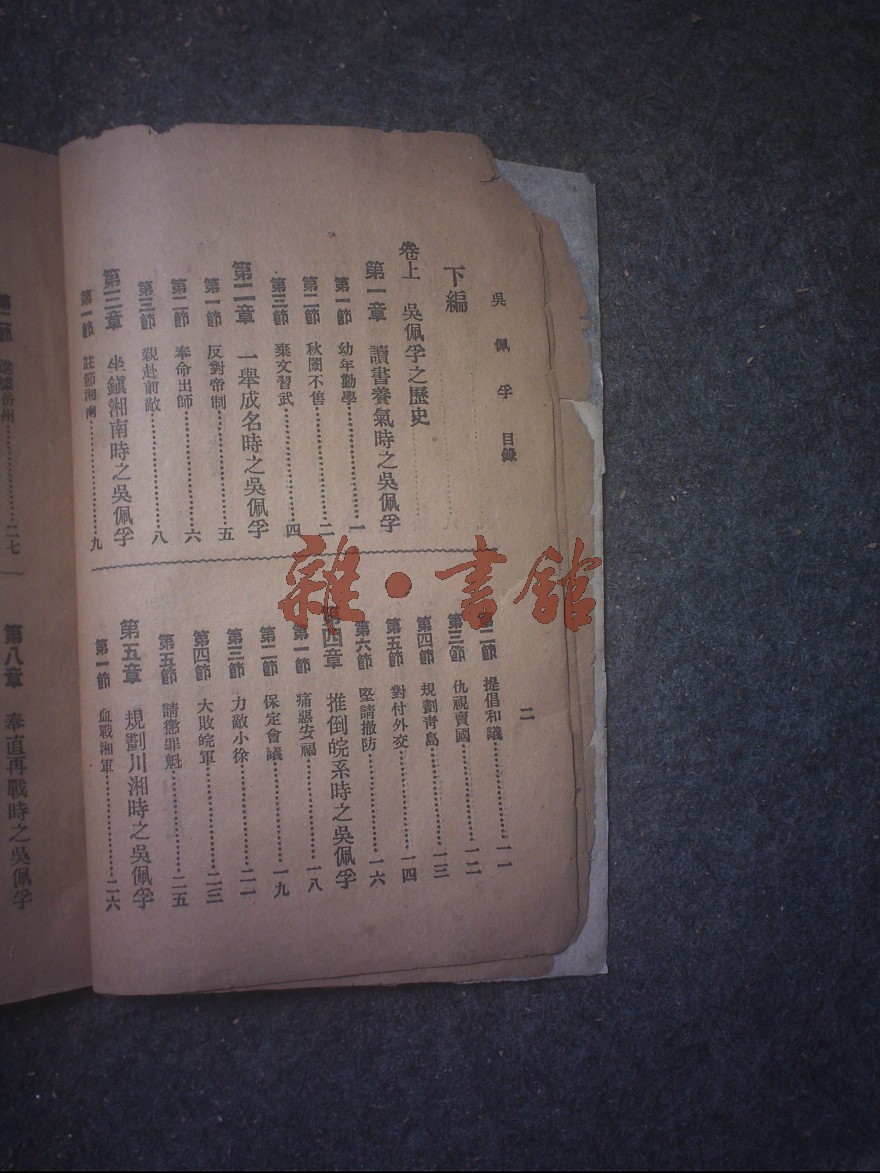 吳佩孚 目錄
二
下編
卷上 吳佩孚之歷史
第一章 讀書養氣時之吳佩孚
第一節 幼年勤學…………一
第二節 秋闈不售…………二
第三節 棄文習武…………四
第二章 一舉成名時之吳佩孚
第一節 反對帝制…………五
第二節 奉命出師…………六
第三節 親赴前敵…………八
第三章 坐鎮湘南時之吳佩孚
第一節 註節湘南…………九
第二節 提倡和議…………一一
第三節 仇視賣國…………一二
第四節 規劃靑島…………一三
第五節 對付外交…………一四
第六節 堅請撤防…………一六
第四章 推倒皖系時之吳佩孚
第一節 痛惡安福…………一八
第二節 保定會議…………一九
第三節 力敵小徐…………二一
第四節 大敗皖軍…………二三
第五節 請懲罪魁…………二五
第五章 規劃川湘時之吳佩孚
第一節 血戰湘軍…………二六
第二節 岳州…………二七
第八章 奉直再戰時之吳佩孚
雜·書館